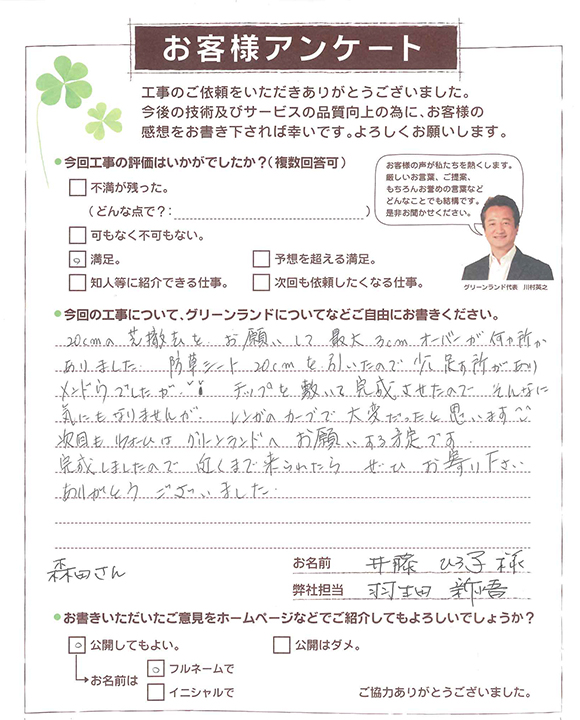 お客様アンケート
工事のご依頼をいただきありがとうございました。
今後の技術及びサービスの品質向上の為に、お客様の
感想をお書き下されば幸いです。よろしくお願いします。
●今回工事の評価はいかがでしたか?(複数回答可)
不満が残った。
(どんな点で?:
可もなく不可もない。
満足。
予想を超える満足。
知人等に紹介できる仕事。
次回も依頼したくなる仕事。
お客様の声が私たちを熱くします。
厳しいお言葉、ご提案、
もちろんお誉めの言葉など
どんなことでも結構です。
是非お聞かせください。
グリーンランド代表 川村英之
●今回の工事について、グリーンランドについてなどご自由にお書きください。
20cmの芝撤去を お願いして 最大3cmオーバーが何ヶ所か
ありました. 防草シート 20cmを引いたので 少し足す所があり
メンドウでしたが. チップを敷いて完成させたので そんなに
気にもなりませんが. レンガのカーブで大変だったと思います
次回も グリーンランドへ お願いする予定です.
完成しましたので 近くまで来られたら ぜひ お寄り下さい
ありがとう ございました.
森田さん
お名前 井藤 ひろ子 様
弊社担当 羽生田 新悟
●お書きいただいたご意見をホームページなどでご紹介してもよろしいでしょうか?
公開してもよい。
公開はダメ。
お名前は
フルネームで
イニシャルで
ご協力ありがとうございました。